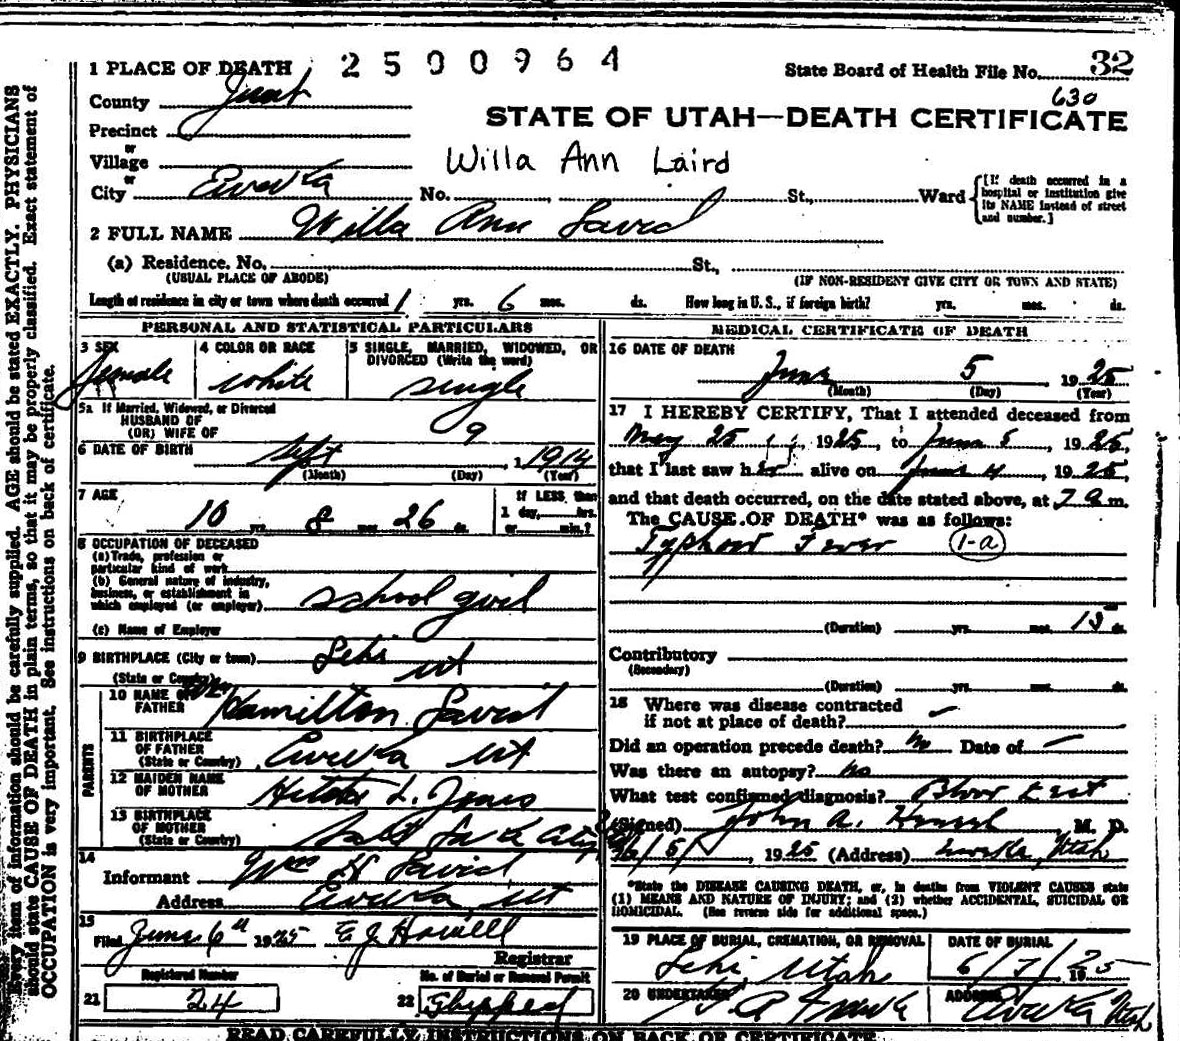 1 PLACE OF DEATH 2500964 State Board of Health File No. 32
County Juab 630
STATE OF UTAH—DEATH CERTIFICATE
Precinct
or
Village Willa Ann Laird
or
City Eureka No. St., Ward {[If death occurred in a hospital or institution give its NAME instead of street and number.]
2 FULL NAME Willa Ann Laird
(a) Residence. No. St.,
(USUAL PLACE OF ABODE) (IF NON-RESIDENT GIVE CITY OR TOWN AND STATE)
Length of residence in city or town where death occurred 1 yrs. 6 mos. ds. How long in U. S., if foreign birth? yrs. mos. ds.
PERSONAL AND STATISTICAL PARTICULARS
3 SEX female
4 COLOR OR RACE white
5 SINGLE, MARRIED, WIDOWED, OR DIVORCED (Write the word) single
5a If Married, Widowed, or Divorced
HUSBAND OF
(OR) WIFE OF
6 DATE OF BIRTH Sept 9, 1914
(Month) (Day) (Year)
7 AGE 10 yrs. 8 mos. 26 ds.
If LESS than 1 day, hrs. or min.?
8 OCCUPATION OF DECEASED
(a) Trade, profession or particular kind of work
(b) General nature of industry, business, or establishment in which employed (or employer) school girl
(c) Name of Employer
9 BIRTHPLACE (City or town) Lehi
(State or Country) Ut
PARENTS
10 NAME OF FATHER Wm Hamilton Laird
11 BIRTHPLACE OF FATHER (State or Country) Eureka Ut
12 MAIDEN NAME OF MOTHER L. Jones
13 BIRTHPLACE OF MOTHER (State or Country) Salt Lake City
14 Informant Wm H Laird
Address Eureka, Ut
15 Filed June 6th 1925 E J Howell
Registrar
Registered Number No. of Burial or Removal Permit
21 24 22 Shipped
MEDICAL CERTIFICATE OF DEATH
16 DATE OF DEATH
June 5, 1925
(Month) (Day) (Year)
17 I HEREBY CERTIFY, That I attended deceased from
May 25, 1925, to June 5, 1925,
that I last saw her alive on June 4, 1925,
and that death occurred, on the date stated above, at 7 a m.
The CAUSE OF DEATH* was as follows:
Typhoid Fever 1-a
(Duration) yrs. mos. 15 ds.
Contributory
(Secondary)
(Duration) yrs. mos. ds.
18 Where was disease contracted
if not at place of death?
Did an operation precede death? no Date of —
Was there an autopsy? no
What test confirmed diagnosis? Blood test
(Signed) John A. M. D.
6/5/, 1925 (Address) Eureka, Utah
*State the DISEASE CAUSING DEATH, or, in deaths from VIOLENT CAUSES state
(1) MEANS AND NATURE OF INJURY; and (2) whether ACCIDENTAL, SUICIDAL OR
HOMICIDAL. (See reverse side for additional space.)
19 PLACE OF BURIAL, CREMATION, OR REMOVAL DATE OF BURIAL
Lehi, Utah 6/7/1925
20 UNDERTAKER ADDRESS
Eureka Utah
READ CAREFULLY INSTRUCTIONS ON BACK OF CERTIFICATE
Every item of information should be carefully supplied. AGE should be stated EXACTLY. PHYSICIANS
should state CAUSE OF DEATH in plain terms, so that it may be properly classified. Exact statement of
OCCUPATION is very important. See instructions on back of certificate.